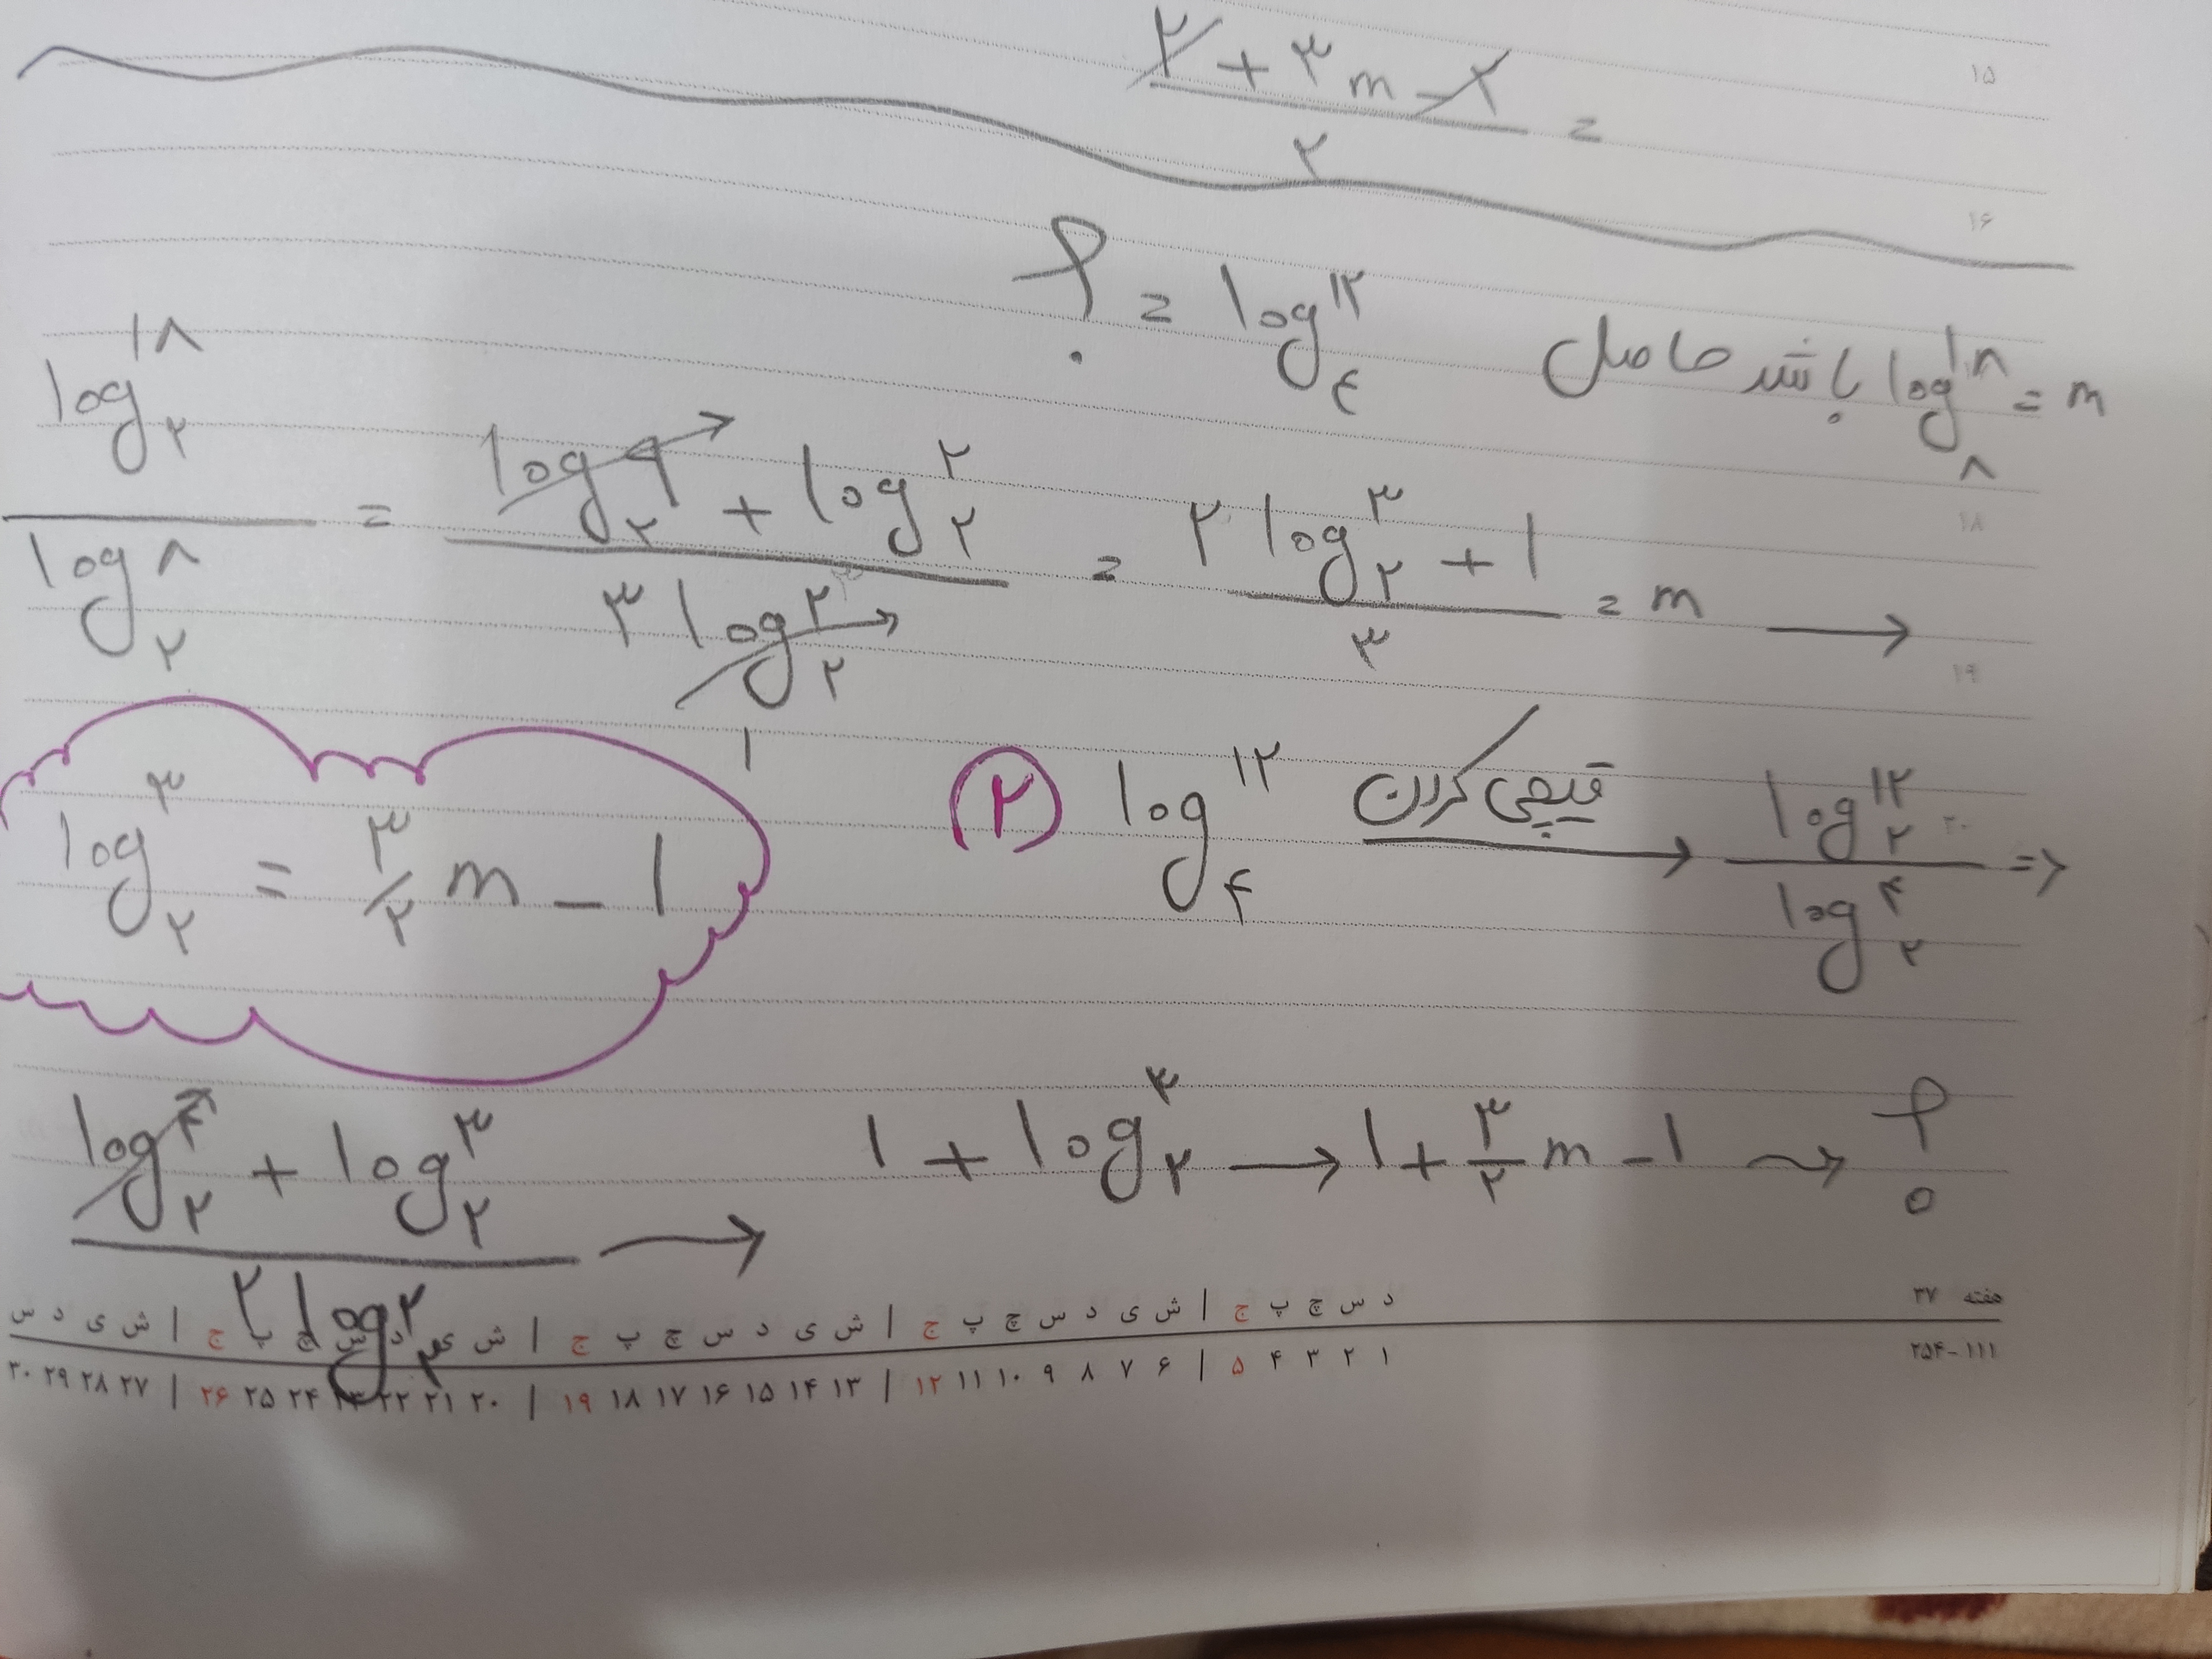 ۲ + ۳m - ۲ / ۲ =
۱۵
۱۶
log₈ ۱۸ = m باشد حاصل log₄ ۱۲ = ؟
log₂ ۱۸ / log₂ ۸ = log₂ ۹ + log₂ ۲ / ۳ log₂ ۲ = ۲ log₂ ۳ + ۱ / ۳ = m →
۱۸
۱
۱۹
log₂ ۳ = ۳/۲ m - ۱
۲ log₄ ۱۲ قیچی کردن → log₂ ۱۲ / log₂ ۴ =>
۲۰
log₂ ۴ + log₂ ۳ / ۲ log₂ ۲ → ۱ + log₂ ۳ → ۱ + ۳/۲ m - ۱ → ؟
هفته ۳۷
د س چ پ ج | ش ی د س چ پ ج | ش ی د س چ پ ج | ش ی د س چ پ ج | ش ی د س
۲۵۴-۱۱۱
۱ ۲ ۳ ۴ ۵ | ۶ ۷ ۸ ۹ ۱۰ ۱۱ ۱۲ | ۱۳ ۱۴ ۱۵ ۱۶ ۱۷ ۱۸ ۱۹ | ۲۰ ۲۱ ۲۲ ۲۳ ۲۴ ۲۵ ۲۶ | ۲۷ ۲۸ ۲۹ ۳۰